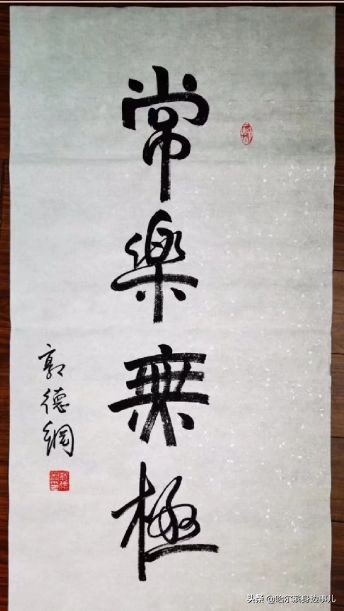 常樂無極
郭德綱
头条 @哈尔滨身边事儿